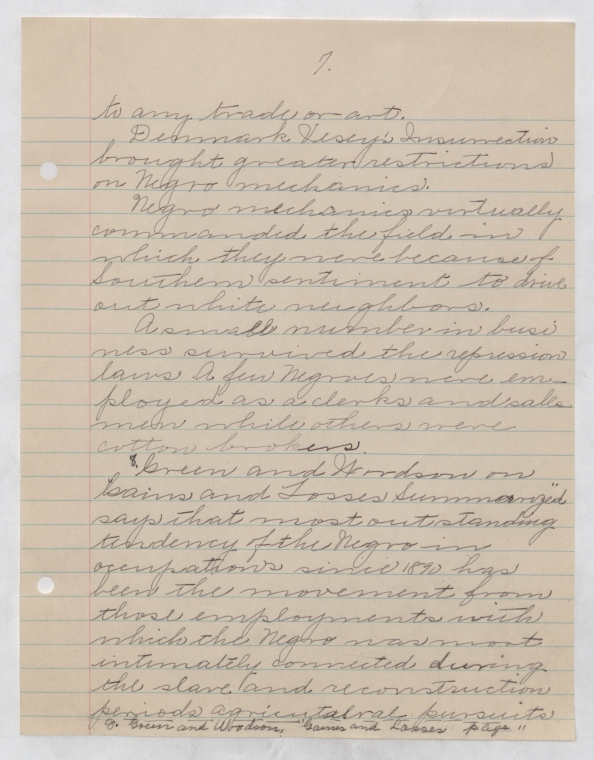 7.
to any trade or art.
Denmark Vesey's Insurrection
brought greater restrictions
on Negro mechanics.
Negro mechanics virtually
commanded the field in
which they were because of
Southern sentiment to drive
out white neighbors.
A small number in busi
ness survived the repression
laws. A few Negroes were em-
ployed as a clerks and sales
men while others were
cotton brokers.
8. Green and Wordson on
"Gains and Losses Summarized"
says that most outstanding
tendency of the Negro in
occupations since 1890 has
been the movement from
those employments with
which the Negro was most
intimately connected during
the slave and reconstruction
periods agricutalral pursuits
8. Green and Woodson, "Gaines and Losses page "